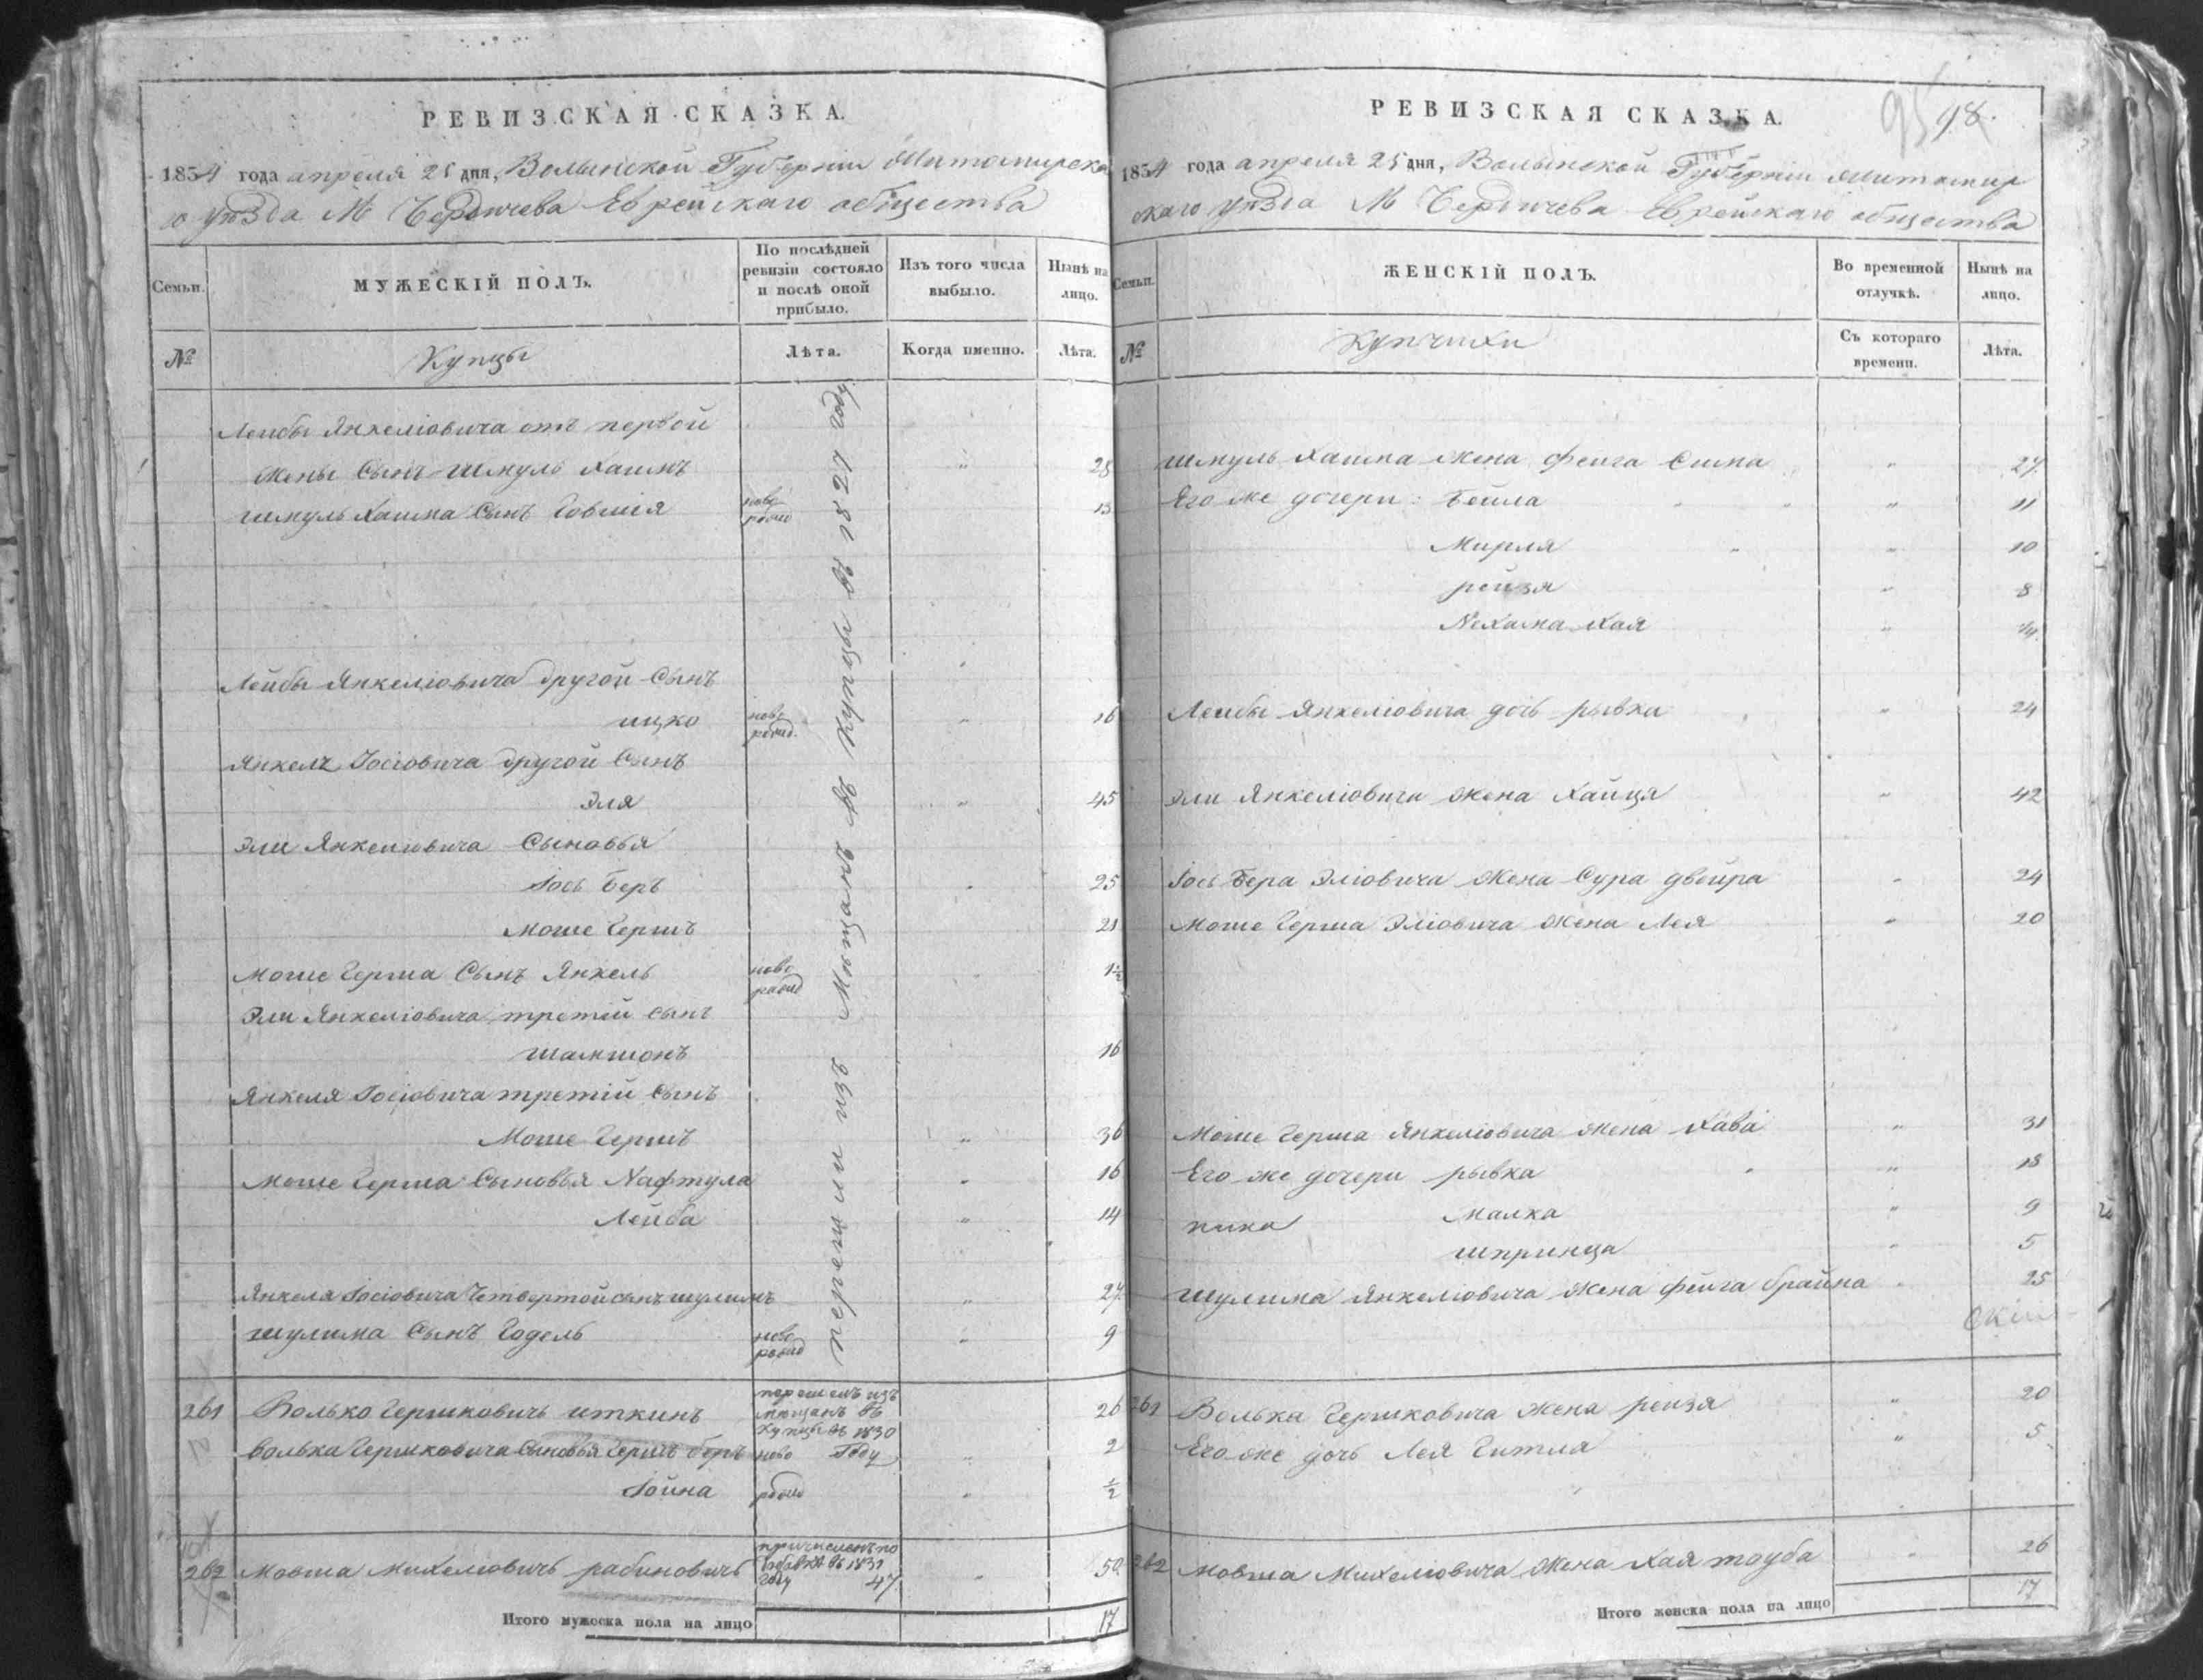 РЕВИЗСКАЯ СКАЗКА.
1834 года апреля 25 дня, Волынской Губерніи Житомирска
го уѣзда М Бердичева Еврейскаго общества
Семьи.
МУЖЕСКІЙ ПОЛЪ.
По послѣдней ревизіи состояло и послѣ оной прибыло.
Изъ того числа выбыло.
Нынѣ на лицо.
№
Купцы
Лѣта.
Когда именно.
Лѣта.
перешли изъ Мещанъ въ Купцы въ 1827 году
Лейбы Янкеліовича отъ первой
жены Сынъ Шмуль Хаимъ " 28
Шмуль Хаима Сынъ Говшія ново рожд 13
Лейбы Янкеліовича другой Сынъ
ицко ново рожд. " 16
Янкеля Іосіовича другой Сынъ
Эля " 45
Эли Янкеліовича Сыновья
Іось Беръ " 25
Моше Гершъ 21
Моше Герша Сынъ Янкель ново рожд " 1½
Эли Янкеліовича третій сынъ
шамшонъ 16
Янкеля Іосіовича третій Сынъ
Моше Гершъ " 36
Моше Герша Сыновья Нафтула " 16
Лейба " 14
Янкеля Іосіовича Четвертой сынъ шулимъ " 27
шулима Сынъ Годель ново рожд " 9
261 Волько Гершковичъ иткинъ перешелъ изъ мещанъ въ Купцы въ 1830 Году 26
Волька Гершковича Сыновья Гершъ беръ ново " 2
Іойна рожд " ½
262 Мовша Михеліовичъ рабиновичъ причисленъ по добавке въ 1831 году 47 " 50
Итого мужеска пола на лицо 17
РЕВИЗСКАЯ СКАЗКА.
95 98.
1834 года апреля 25 дня, Волынской Губерніи Житомир
скаго уѣзда М Бердичева Еврейскаго общества
Семьи.
ЖЕНСКІЙ ПОЛЪ.
Во временной отлучкѣ.
Нынѣ на лицо.
№
Купчихи
Съ котораго времени.
Лѣта.
Шмуль Хаима жена фейга Сима " 27
Его же дочери: Бейла " 11
Мирля " 10
рейзя " 8
Нехама Хая "
Лейбы Янкеліовича дочь рывка " 24
Эли Янкеліовича жена Хайця " 42
Іось Бера Эліовича жена Сура двойра " 24
Моше Герша Эліовича жена Лея " 20
Моше Герша Янкеліовича жена Хава " 31
Его же дочери рывка " 18
Малка " 9
шпринца " 5
шулима Янкеліовича жена фейга брайна " 25
261 Волька Гершковича жена рейзя " 20
Его же дочь Лея Гитла " 5
262 Мовша Михеліовича Жена Хая тауба " 26
Итого женска пола на лицо 17